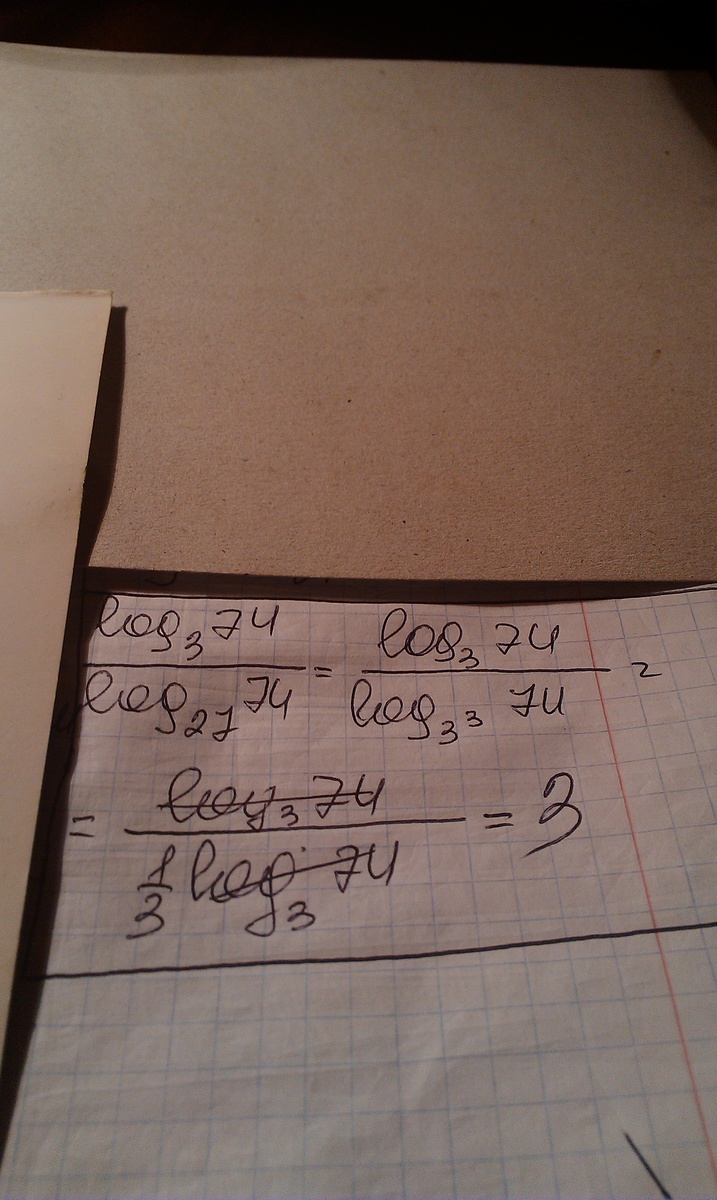 log₃ 74 / log₂₇ 74 = log₃ 74 / log₃³ 74 =
= log₃ 74 / 1/3 log₃ 74 = 3